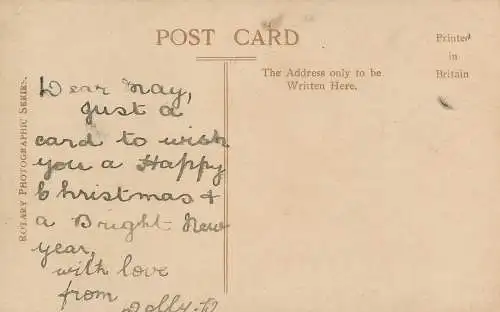 POST CARD
Printed
in
Britain
The Address only to be
Written Here.
ROTARY PHOTOGRAPHIC SERIES.
Dear May,
Just a
card to wish
you a Happy
Christmas +
a Bright New
year,
with love
from
Dolly.